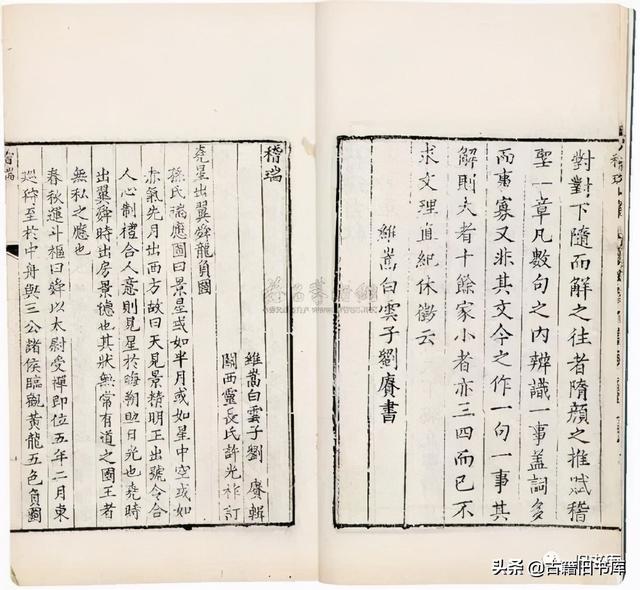 對對下隨而解之往者隋顔之推賦稽
聖一章凡數句之内辨識一事盖詞多
而事寡又非其文今之作一句一事其
解則大者十餘家小者亦三四而已不
求文理直紀休徵云
維嵩白雲子劉賡書
稽瑞
維嵩白雲子劉 賡輯
關西靈長氏許光祚訂
堯星出翼舜龍負圖
孫氏瑞應圖曰景星或如半月或如星中空或如
赤氣先月出西方故曰天見景精明王出號令合
人心制禮合人意則見星於晦朔助日光也堯時
出翼舜時出房景德也其狀無常有道之國王者
無私之應也
春秋運斗樞曰舜以太尉受禪即位五年二月東
廵狩至於中舟與三公諸侯臨觀黃龍五色負圖
头条 @古籍旧书库